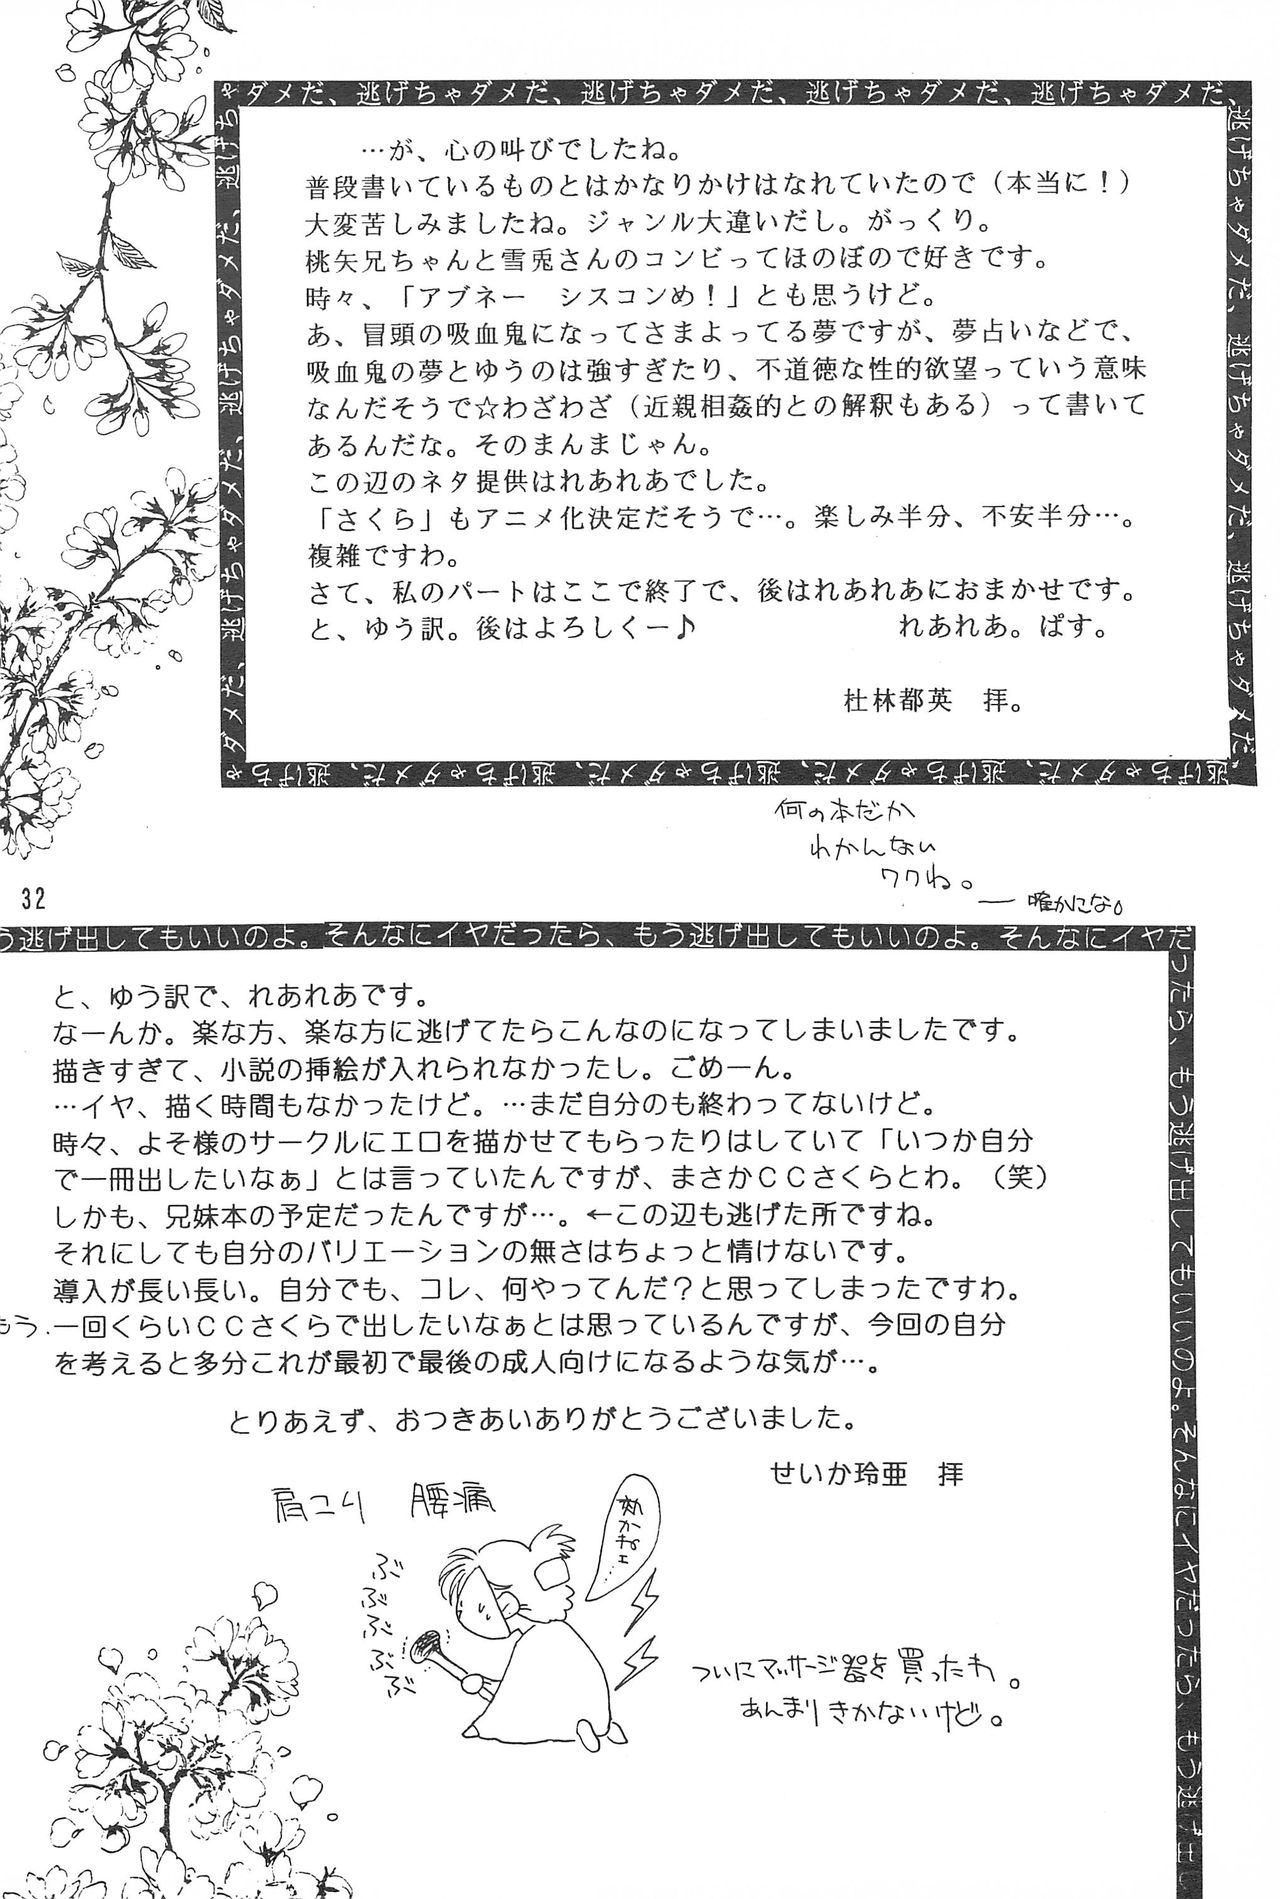 ダメだ、逃げちゃダメだ、逃げちゃダメだ、逃げちゃダメだ、逃げちゃダメだ、
…が、心の叫びでしたね。
普段書いているものとはかなりかけはなれていたので（本当に！）
大変苦しみましたね。ジャンル大違いだし。がっくり。
桃矢兄ちゃんと雪兎さんのコンビってほのぼので好きです。
時々、「アブネー　シスコンめ！」とも思うけど。
あ、冒頭の吸血鬼になってさまよってる夢ですが、夢占いなどで、
吸血鬼の夢とゆうのは強すぎたり、不道徳な性的欲望っていう意味
なんだそうで☆わざわざ（近親相姦的との解釈もある）って書いて
あるんだな。そのまんまじゃん。
この辺のネタ提供はれあれあでした。
「さくら」もアニメ化決定だそうで…。楽しみ半分、不安半分…。
複雑ですわ。
さて、私のパートはここで終了で、後はれあれあにおまかせです。
と、ゆう訳。後はよろしくー♪　れあれあ。ぱす。
杜林都英　拝。
逃げちゃダメだ、逃げちゃダメだ、逃げちゃダメだ、
何の本だか
わかんない
ワクね。
― 確かにな。
32
う逃げ出してもいいのよ。そんなにイヤだったら、もう逃げ出してもいいのよ。そんなにイヤだ
ったら、もう逃げ出してもいいのよ。そんなにイヤだったら、もう逃げ出し
と、ゆう訳で、れあれあです。
なーんか。楽な方、楽な方に逃げてたらこんなのになってしまいましたです。
描きすぎて、小説の挿絵が入れられなかったし。ごめーん。
…イヤ、描く時間もなかったけど。…まだ自分のも終わってないけど。
時々、よそ様のサークルにエロを描かせてもらったりはしていて「いつか自分
で一冊出したいなぁ」とは言っていたんですが、まさかＣＣさくらとわ。（笑）
しかも、兄妹本の予定だったんですが…。←この辺も逃げた所ですね。
それにしても自分のバリエーションの無さはちょっと情けないです。
導入が長い長い。自分でも、コレ、何やってんだ？と思ってしまったですわ。
もう、一回くらいＣＣさくらで出したいなぁとは思っているんですが、今回の自分
を考えると多分これが最初で最後の成人向けになるような気が…。
とりあえず、おつきあいありがとうございました。
せいか玲亜　拝
肩こり　腰痛
効かねェ…
ぶぶぶぶぶぶ
ついにマッサージ器を買ったわ。
あんまりきかないけど。